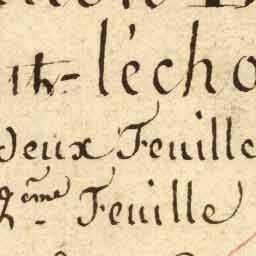 th- l'écho
deux Feuille
2ème Feuille